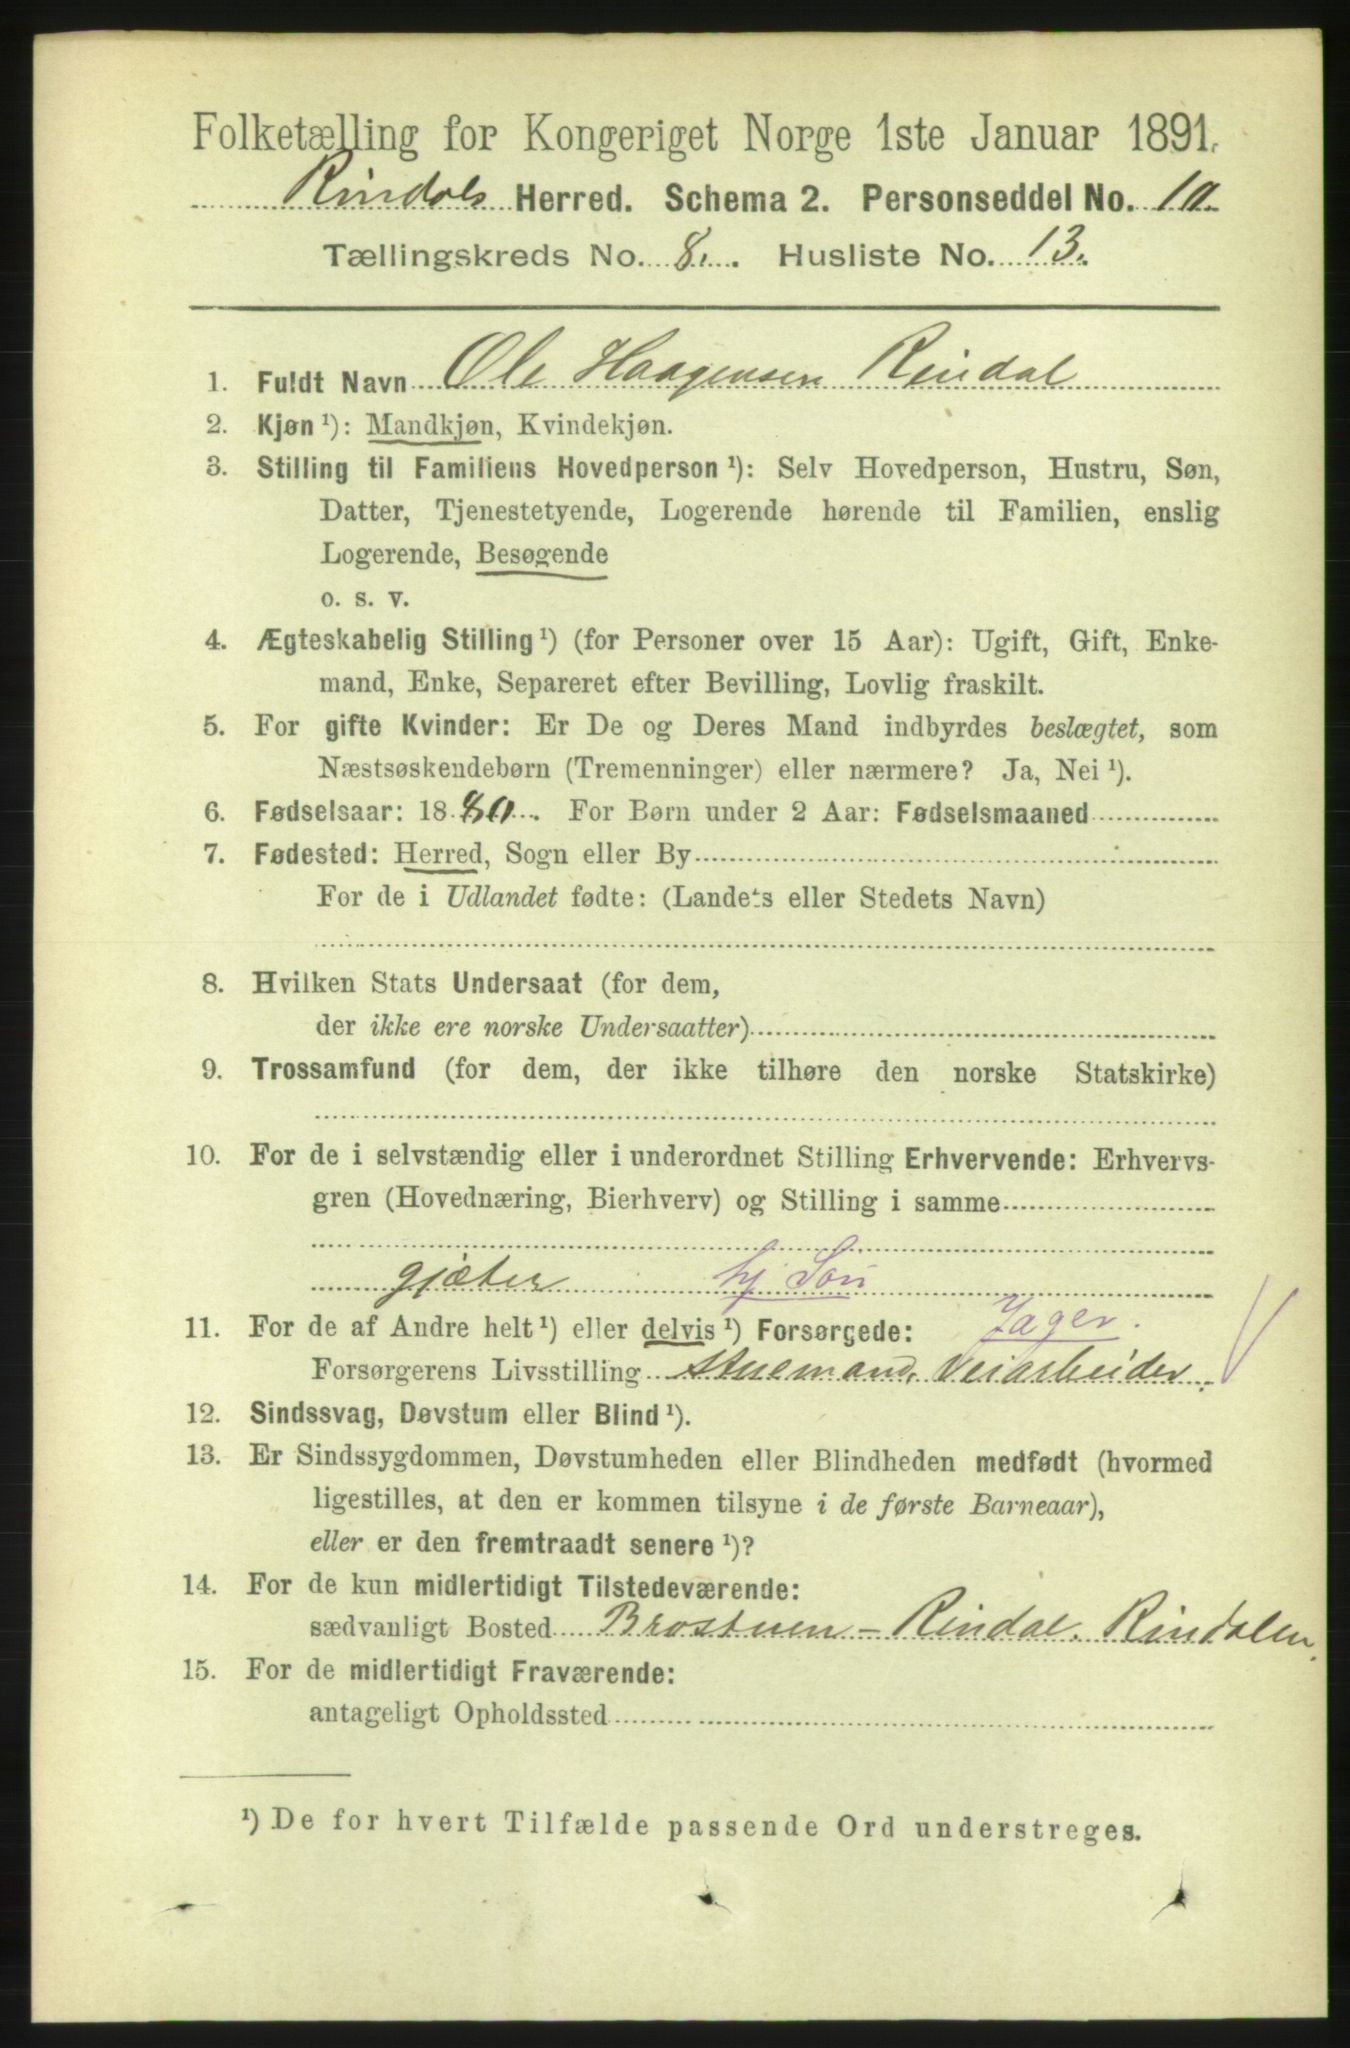 Folketælling for Kongeriget Norge 1ste Januar 1891.
Rindals Herred. Schema 2. Personseddel No. 10.
Tællingskreds No. 8. Husliste No. 13.
1. Fuldt Navn Ole Haagensen Rindal
2. Kjøn ¹): Mandkjøn, Kvindekjøn.
3. Stilling til Familiens Hovedperson ¹): Selv Hovedperson, Hustru, Søn,
Datter, Tjenestetyende, Logerende hørende til Familien, enslig
Logerende, Besøgende
o. s. v.
4. Ægteskabelig Stilling ¹) (for Personer over 15 Aar): Ugift, Gift, Enke-
mand, Enke, Separeret efter Bevilling, Lovlig fraskilt.
5. For gifte Kvinder: Er De og Deres Mand indbyrdes beslægtet, som
Næstsøskendebørn (Tremenninger) eller nærmere? Ja, Nei ¹).
6. Fødselsaar: 1880. For Børn under 2 Aar: Fødselsmaaned
7. Fødested: Herred, Sogn eller By
For de i Udlandet fødte: (Landets eller Stedets Navn)
8. Hvilken Stats Undersaat (for dem,
der ikke ere norske Undersaatter)
9. Trossamfund (for dem, der ikke tilhøre den norske Statskirke)
10. For de i selvstændig eller i underordnet Stilling Erhvervende: Erhvervs-
gren (Hovednæring, Bierhverv) og Stilling i samme
gjæter hj Søn
11. For de af Andre helt ¹) eller delvis ¹) Forsørgede: Jager.
Forsørgerens Livsstilling stuemand, Veiarbeider.
12. Sindssvag, Døvstum eller Blind ¹).
13. Er Sindssygdommen, Døvstumheden eller Blindheden medfødt (hvormed
ligestilles, at den er kommen tilsyne i de første Barneaar),
eller er den fremtraadt senere ¹)?
14. For de kun midlertidigt Tilstedeværende:
sædvanligt Bosted Brostuen - Rindal. Rindalen.
15. For de midlertidigt Fraværende:
antageligt Opholdssted
¹) De for hvert Tilfælde passende Ord understreges.